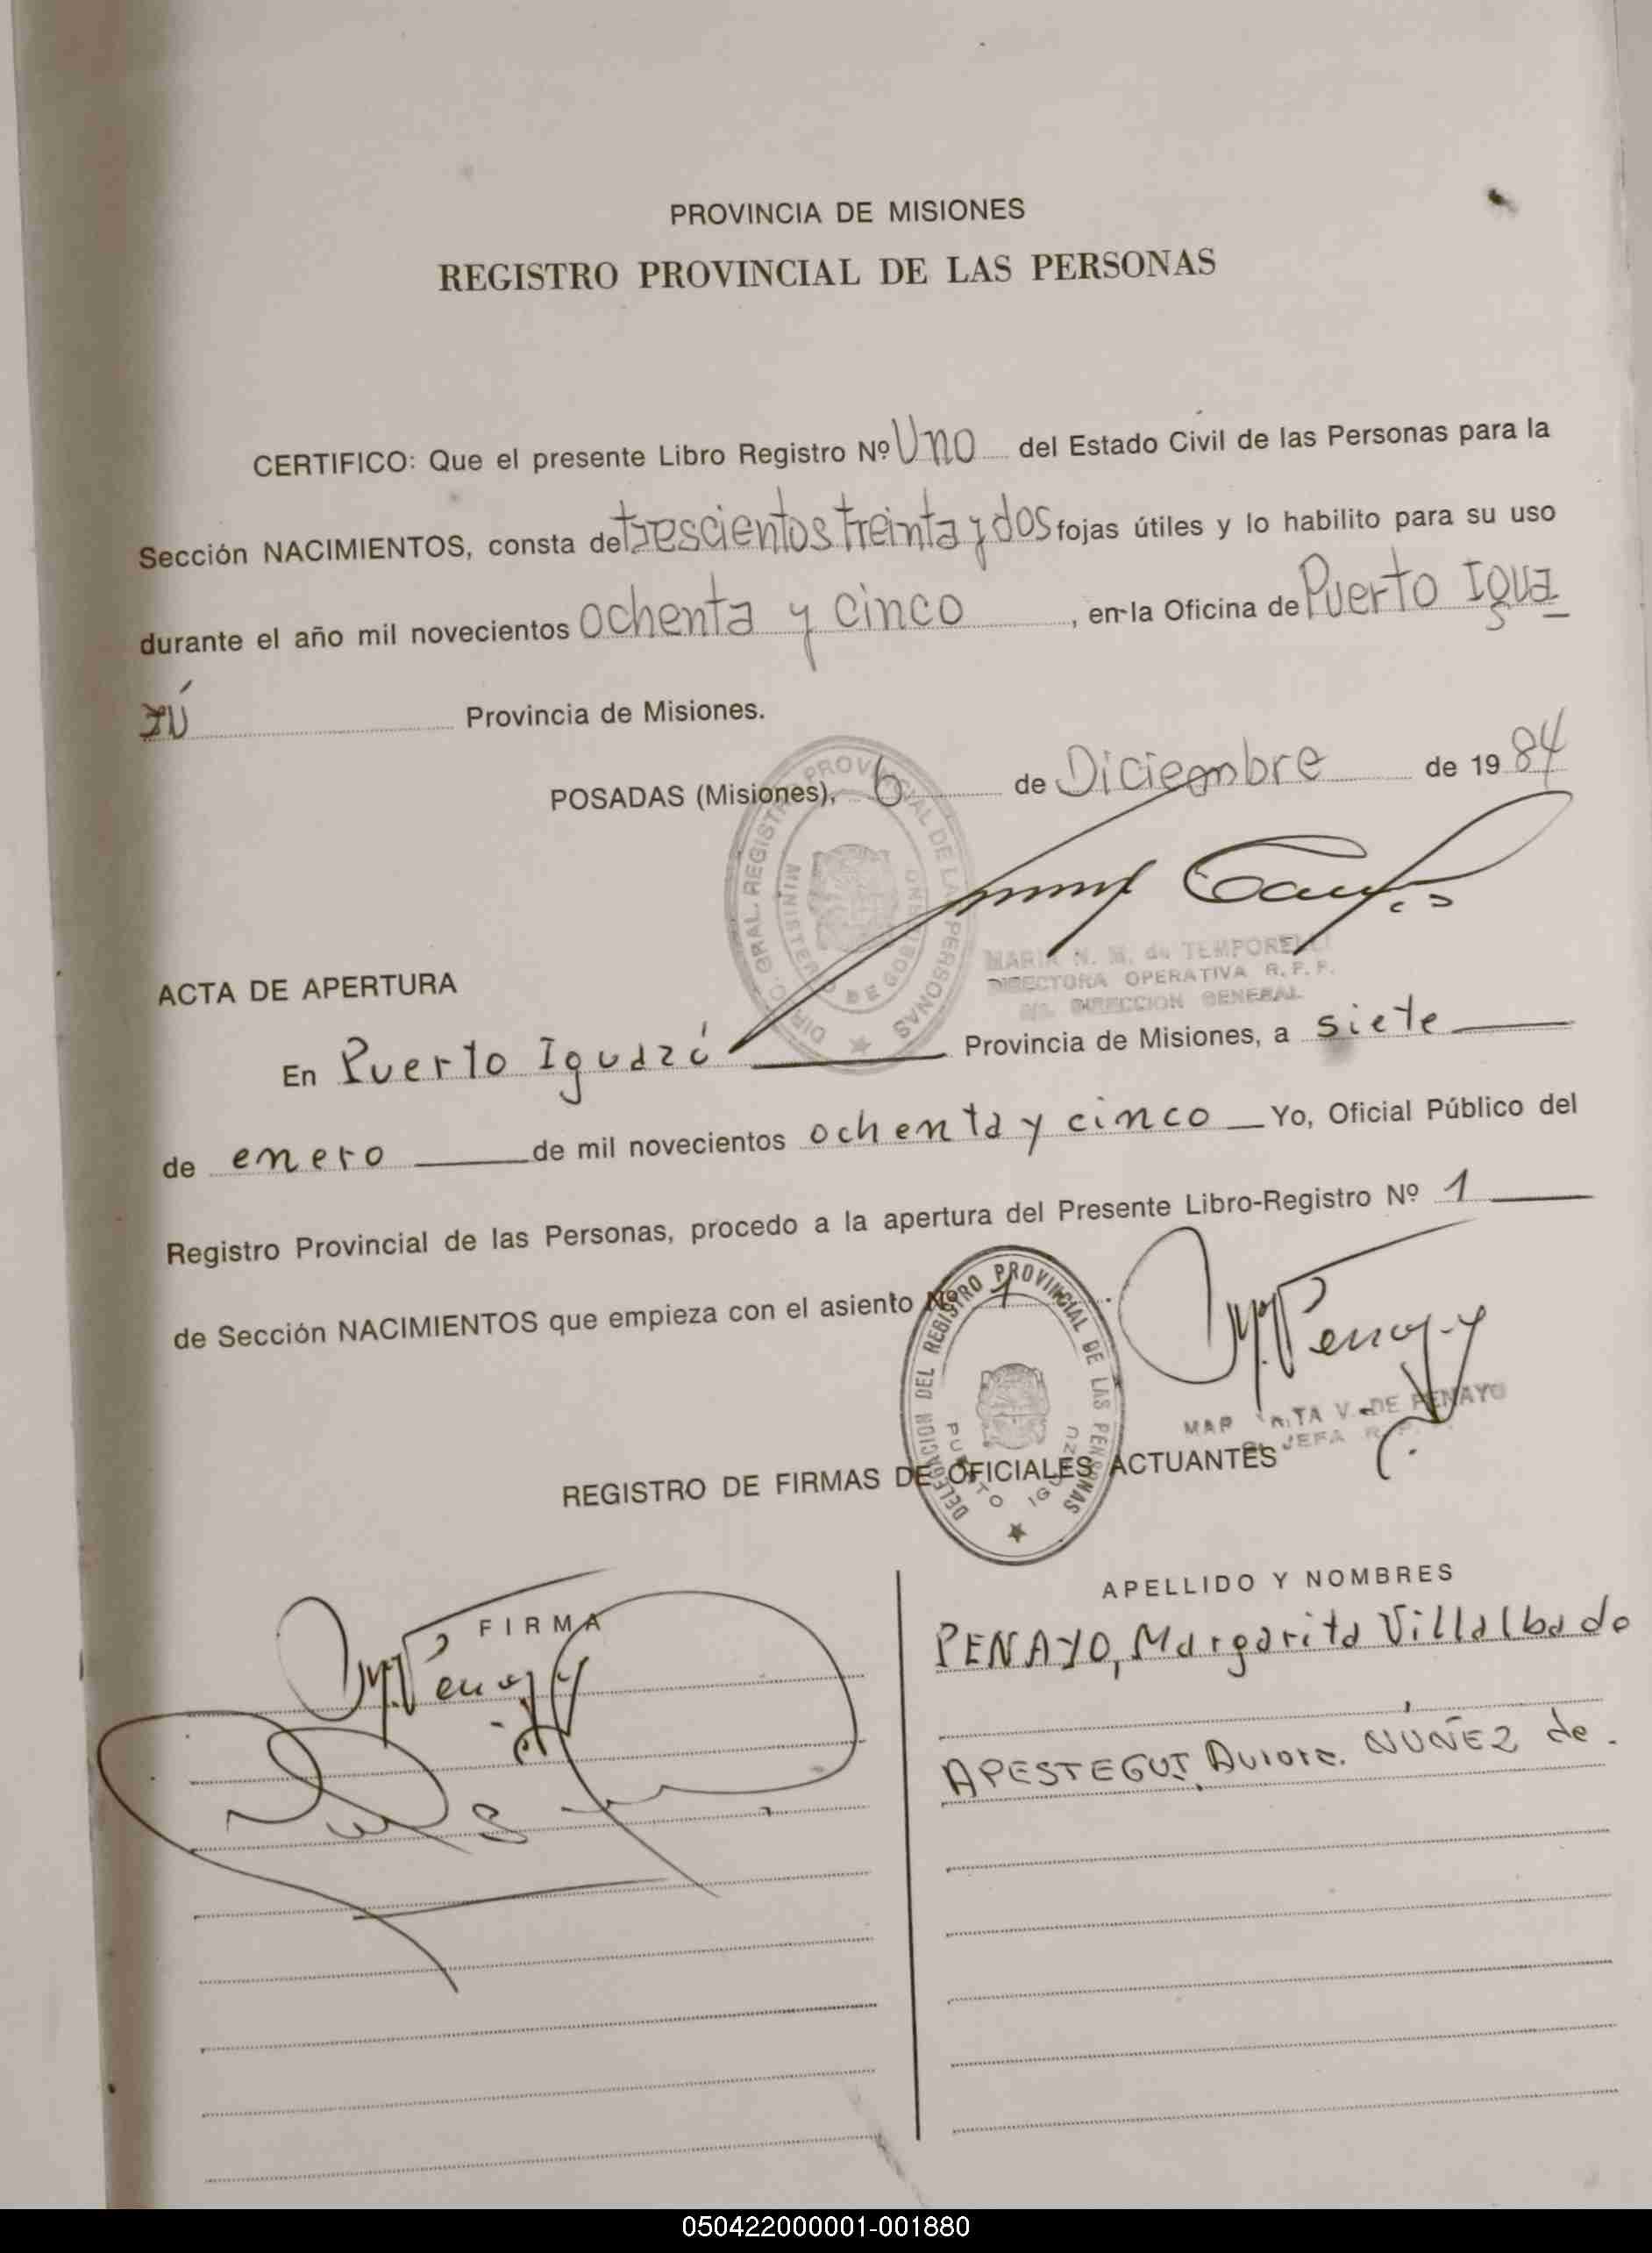 PROVINCIA DE MISIONES
REGISTRO PROVINCIAL DE LAS PERSONAS
CERTIFICO: Que el presente Libro Registro Nº Uno del Estado Civil de las Personas para la
Sección NACIMIENTOS, consta de trescientos treinta y dos fojas útiles y lo habilito para su uso
durante el año mil novecientos ochenta y cinco, en la Oficina de Puerto Igua
zú Provincia de Misiones.
POSADAS (Misiones), 6 de Diciembre de 1984
DIR. GRAL. REGISTRO PROVINCIAL DE LAS PERSONAS
MINISTERIO DE GOBIERNO
MARIA N. M. de TEMPORELLI
DIRECTORA OPERATIVA R. P. P.
DIRECCION GENERAL
ACTA DE APERTURA
En Puerto Iguazú Provincia de Misiones, a siete
de enero de mil novecientos ochenta y cinco Yo, Oficial Público del
Registro Provincial de las Personas, procedo a la apertura del Presente Libro-Registro Nº 1
de Sección NACIMIENTOS que empieza con el asiento Nº 1.
DELEGACION DEL REGISTRO PROVINCIAL DE LAS PERSONAS
PUERTO IGUAZU
V. DE PENAYO
JEFA
REGISTRO DE FIRMAS DE OFICIALES ACTUANTES
FIRMA
APELLIDO Y NOMBRES
PENAYO, Margarita Villalba de
APESTEGUI, Aurora. NÚÑEZ de.
050422000001-001880